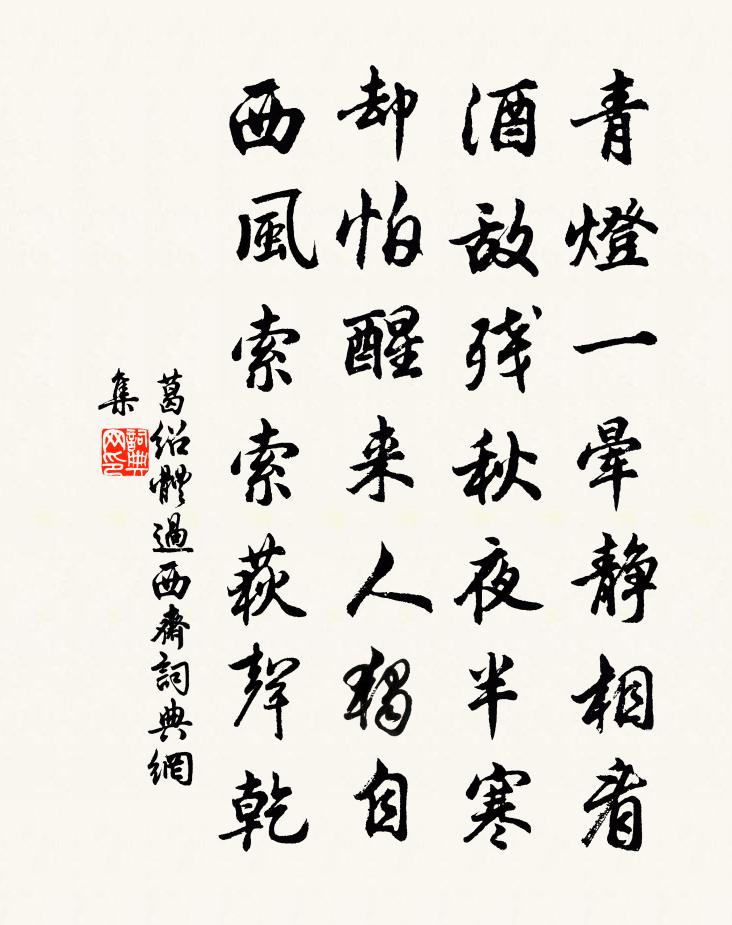 青燈一暈静相看
酒敌残秋夜半寒
却怕醒来人獨自
西風索索荻聲乾
葛紹體過西齋詞典網
集
詞典网印